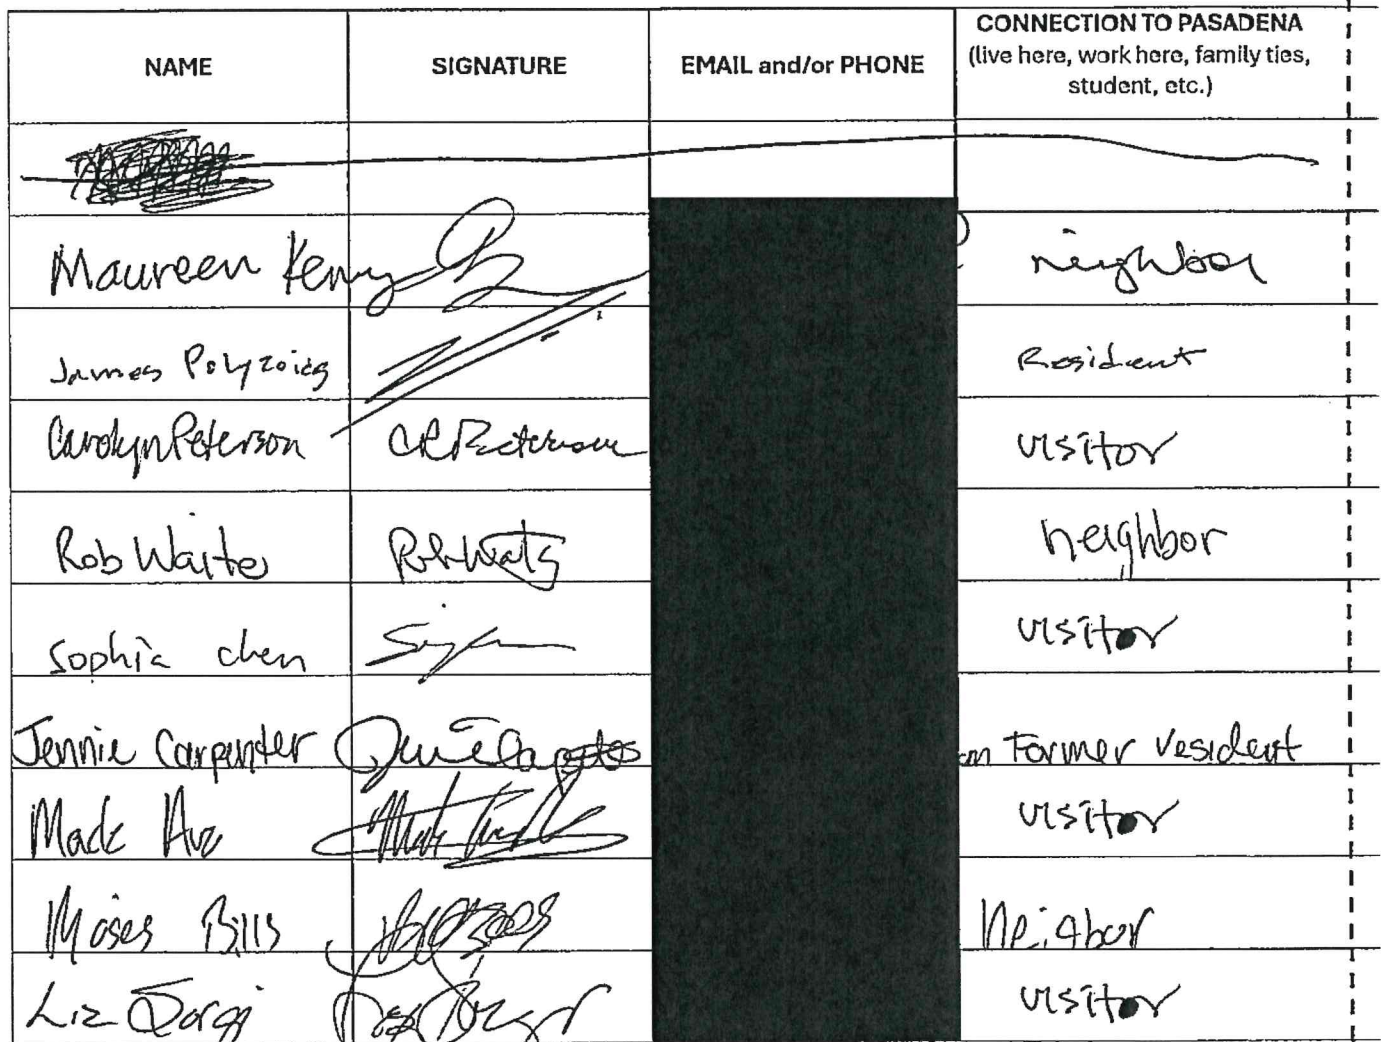 NAME SIGNATURE EMAIL and/or PHONE CONNECTION TO PASADENA
(live here, work here, family ties,
student, etc.)
Maureen Kenny neighbor
James Polyzoides Resident
Carolyn Peterson CRPeterson visitor
Rob Waites neighbor
Sophia chen visitor
Jennie Carpenter Former resident
Mark visitor
Moses Bills Neigbor
Liz Sorgi visitor